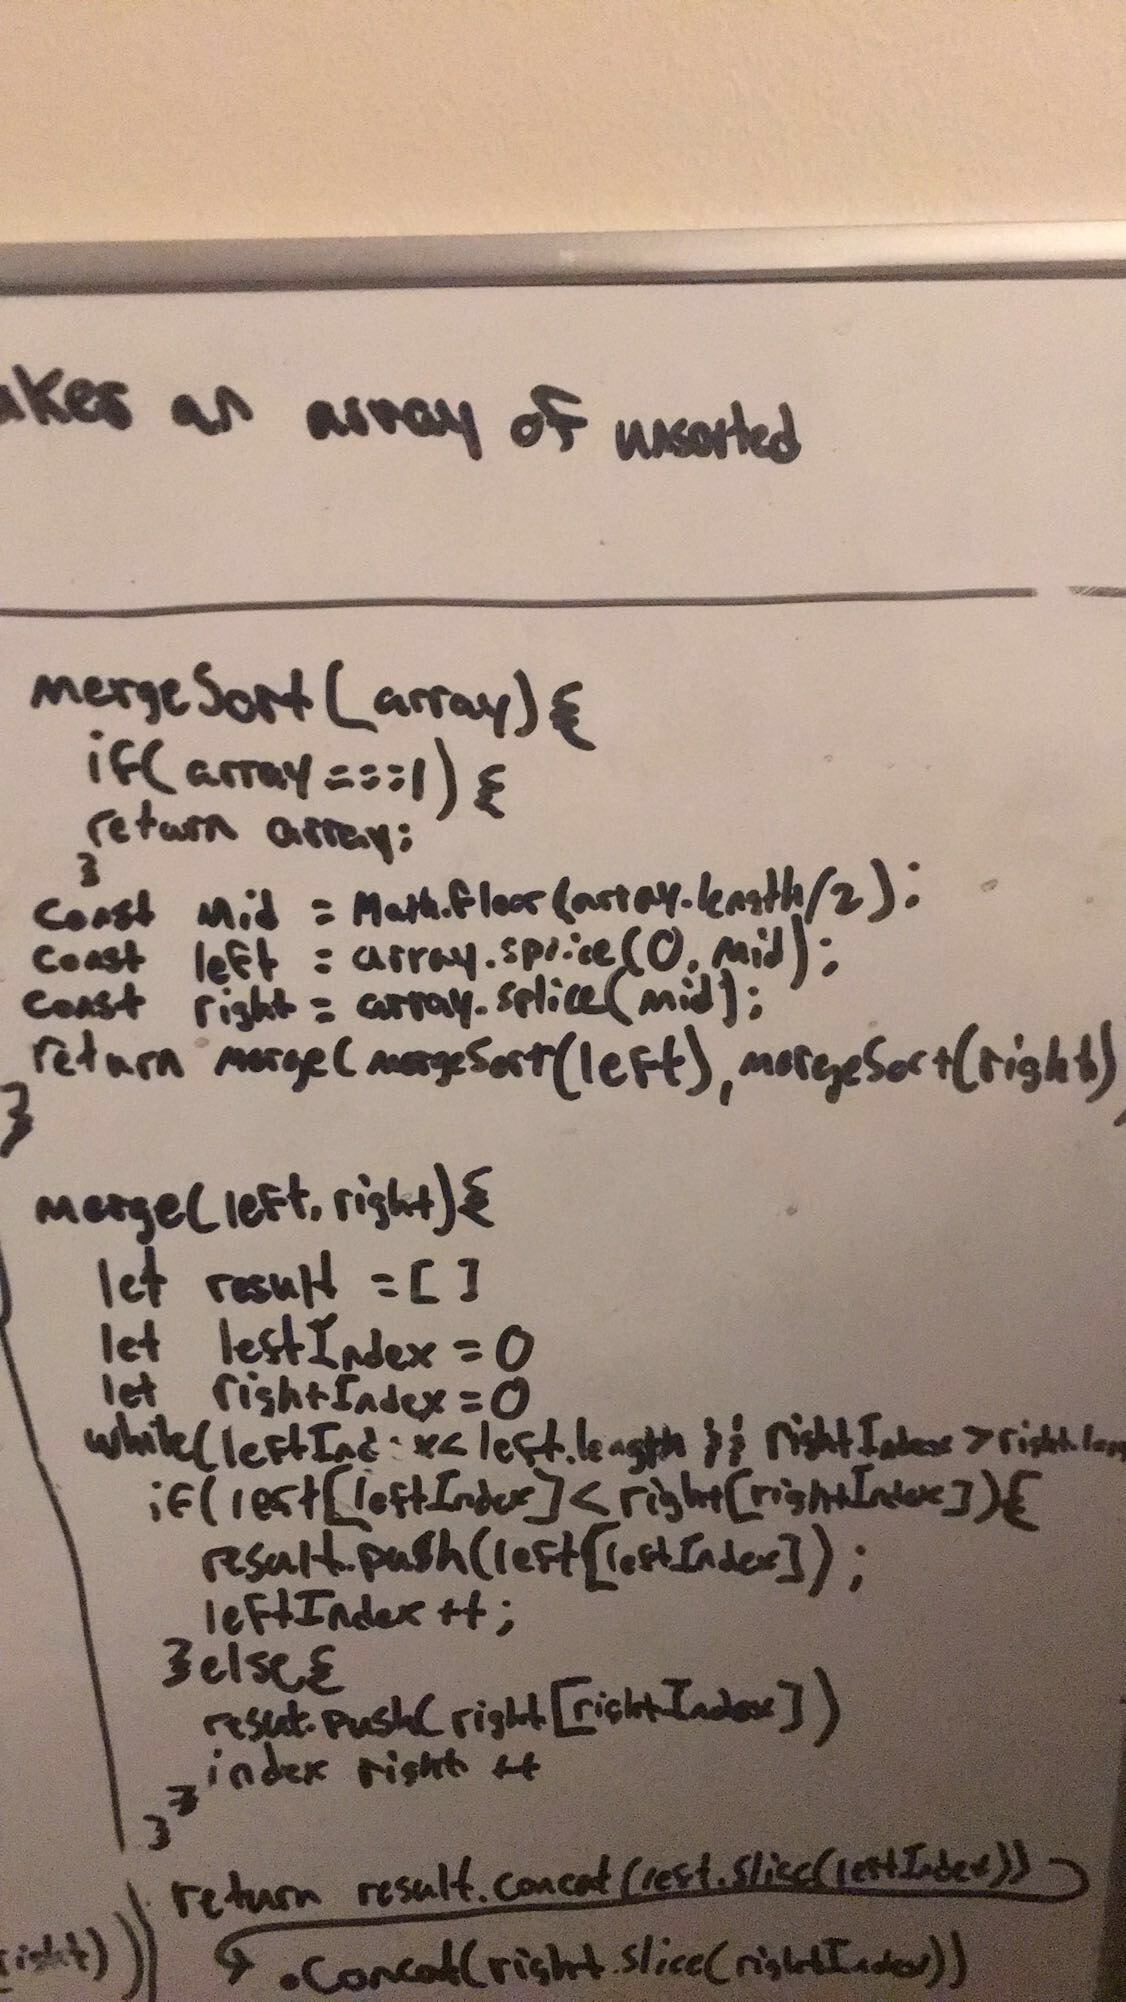 akes an array of unsorted
mergeSort(array){
if(array===1){
return array;
}
const mid = Math.floor(array.length/2);
const left = array.splice(0, mid);
const right = array.splice(mid);
return merge(mergeSort(left), mergeSort(right)
}
merge(left, right){
let result = []
let leftIndex = 0
let rightIndex = 0
while(leftIndex < left.length && rightIndex > right.len
if(left[leftIndex] < right[rightIndex]){
result.push(left[leftIndex]);
leftIndex++;
}else{
result.push(right[rightIndex])
index right ++
}
}
return result.concat(left.slice(leftIndex))
.concat(right.slice(rightIndex))
right))